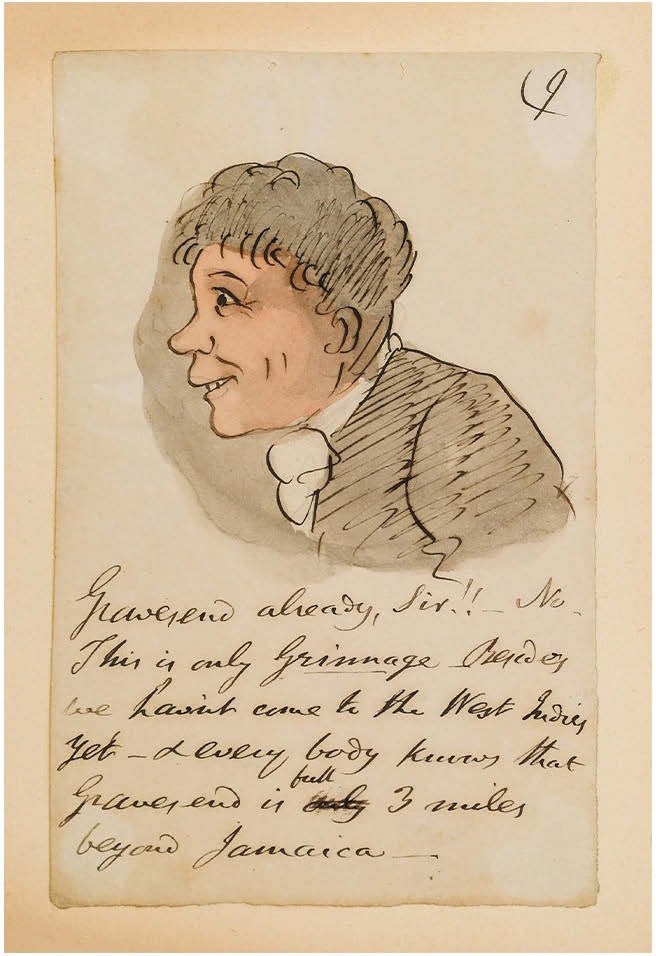 9
Gravesend already, Sir!! — No —
This is only Grinnage Besides
we hav'nt come to the West Indies
yet — & every body knows that
full
Gravesend is only 3 miles
beyond Jamaica —